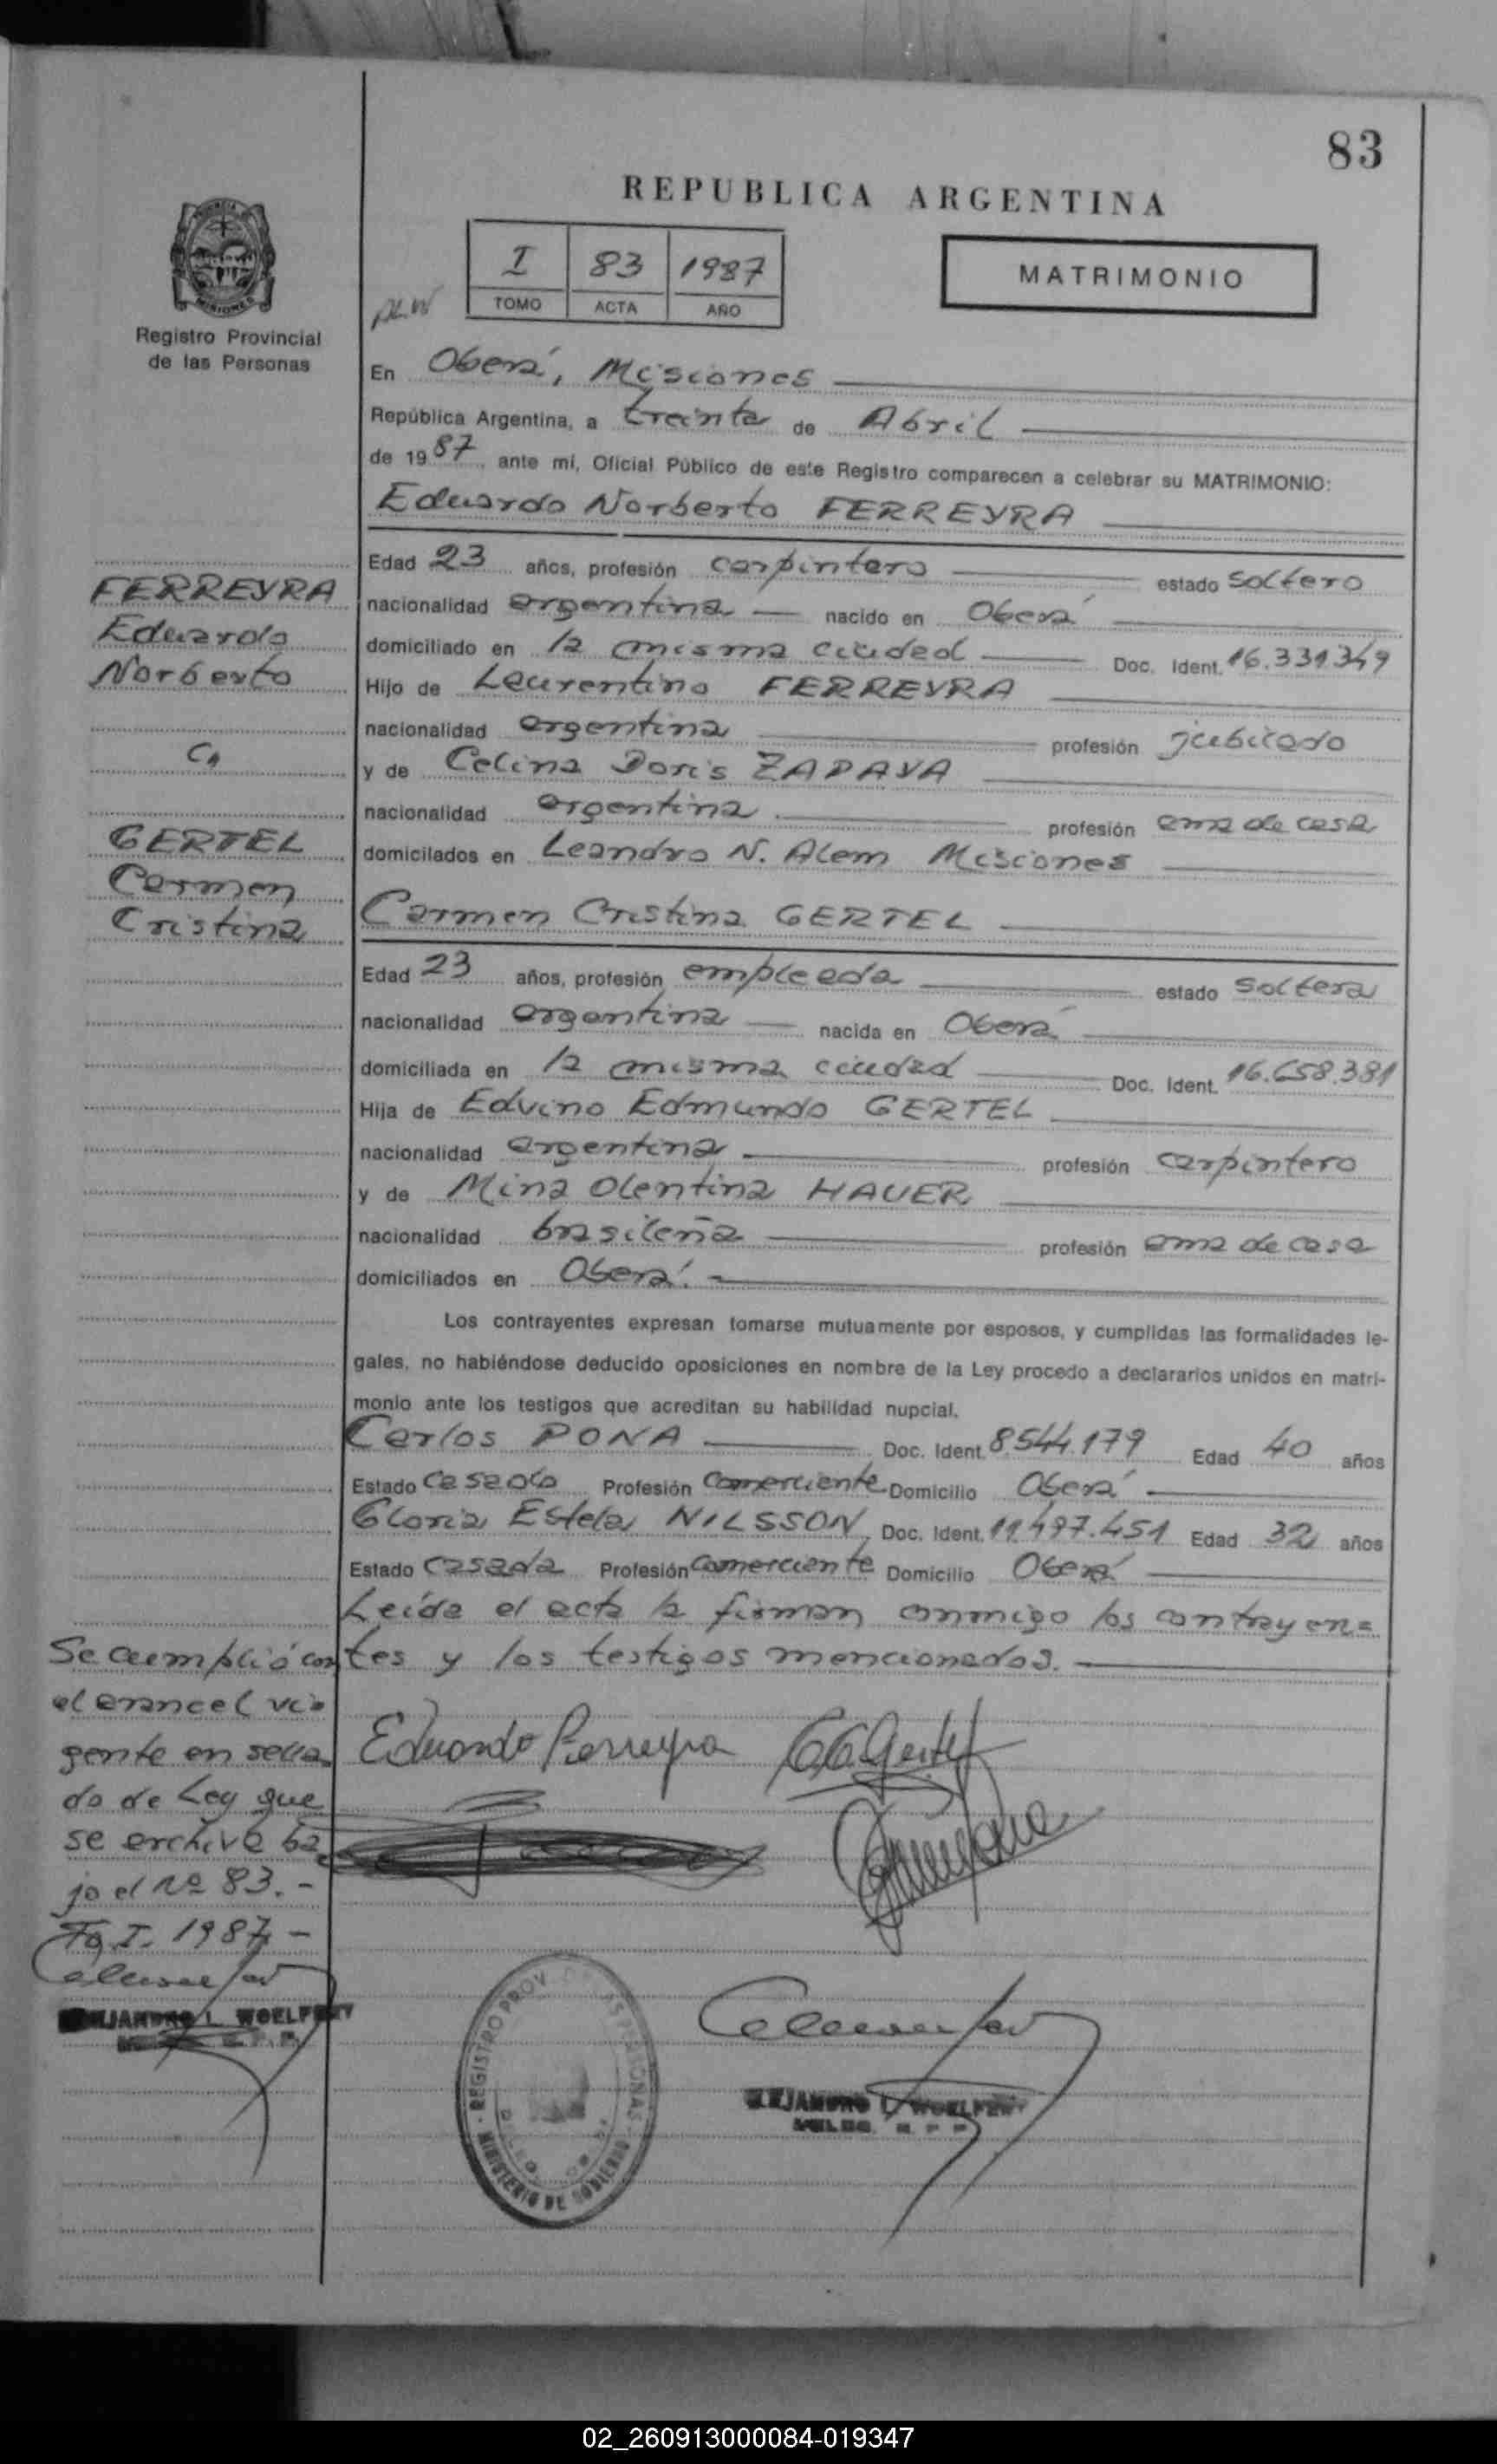 83
REPUBLICA ARGENTINA
I 83 1987
TOMO ACTA AÑO
MATRIMONIO
Registro Provincial
de las Personas
En Oberá, Misiones
República Argentina, a treinta de Abril
de 1987, ante mi, Oficial Público de este Registro comparecen a celebrar su MATRIMONIO:
Eduardo Norberto FERREYRA
Edad 23 años, profesión carpintero estado soltero
nacionalidad argentina nacido en Oberá
domiciliado en la misma ciudad Doc. Ident. 16.331.349
Hijo de Laurentino FERREYRA
nacionalidad argentina profesión jubilado
y de Celina Doris ZAPAYA
nacionalidad argentina profesión ama de casa
domicilados en Leandro N. Alem Misiones
Carmen Cristina GERTEL
Edad 23 años, profesión empleada estado soltera
nacionalidad argentina nacida en Oberá
domiciliada en la misma ciudad Doc. Ident. 16.658.381
Hija de Edvino Edmundo GERTEL
nacionalidad argentina profesión carpintero
y de Mina Olentina HAUER
nacionalidad brasileña profesión ama de casa
domiciliados en Oberá.
Los contrayentes expresan tomarse mutuamente por esposos, y cumplidas las formalidades le-
gales, no habiéndose deducido oposiciones en nombre de la Ley procedo a declararlos unidos en matri-
monio ante los testigos que acreditan su habilidad nupcial.
Carlos PONA Doc. Ident. 8.544.179 Edad 40 años
Estado casado Profesión Comerciante Domicilio Oberá
Gloria Estela NILSSON Doc. Ident. 11.497.451 Edad 32 años
Estado casada Profesión Comerciante Domicilio Oberá
Leída el acta la firman conmigo los contrayen=
tes y los testigos mencionados.
Eduardo Ferreyra CCGertel
FERREYRA
Eduardo
Norberto
GERTEL
Carmen
Cristina
Se cumplió con
el arancel vi=
gente en sella
do de Ley que
se archiva ba
jo el Nº 83.-
Tº I. 1987.-
ALEJANDRO L. WOELFERT
REGISTRO PROV AS PERSONAS
MINISTERIO DE GOBIERNO
ALEJANDRO L. WOELFERT
02_260913000084-019347